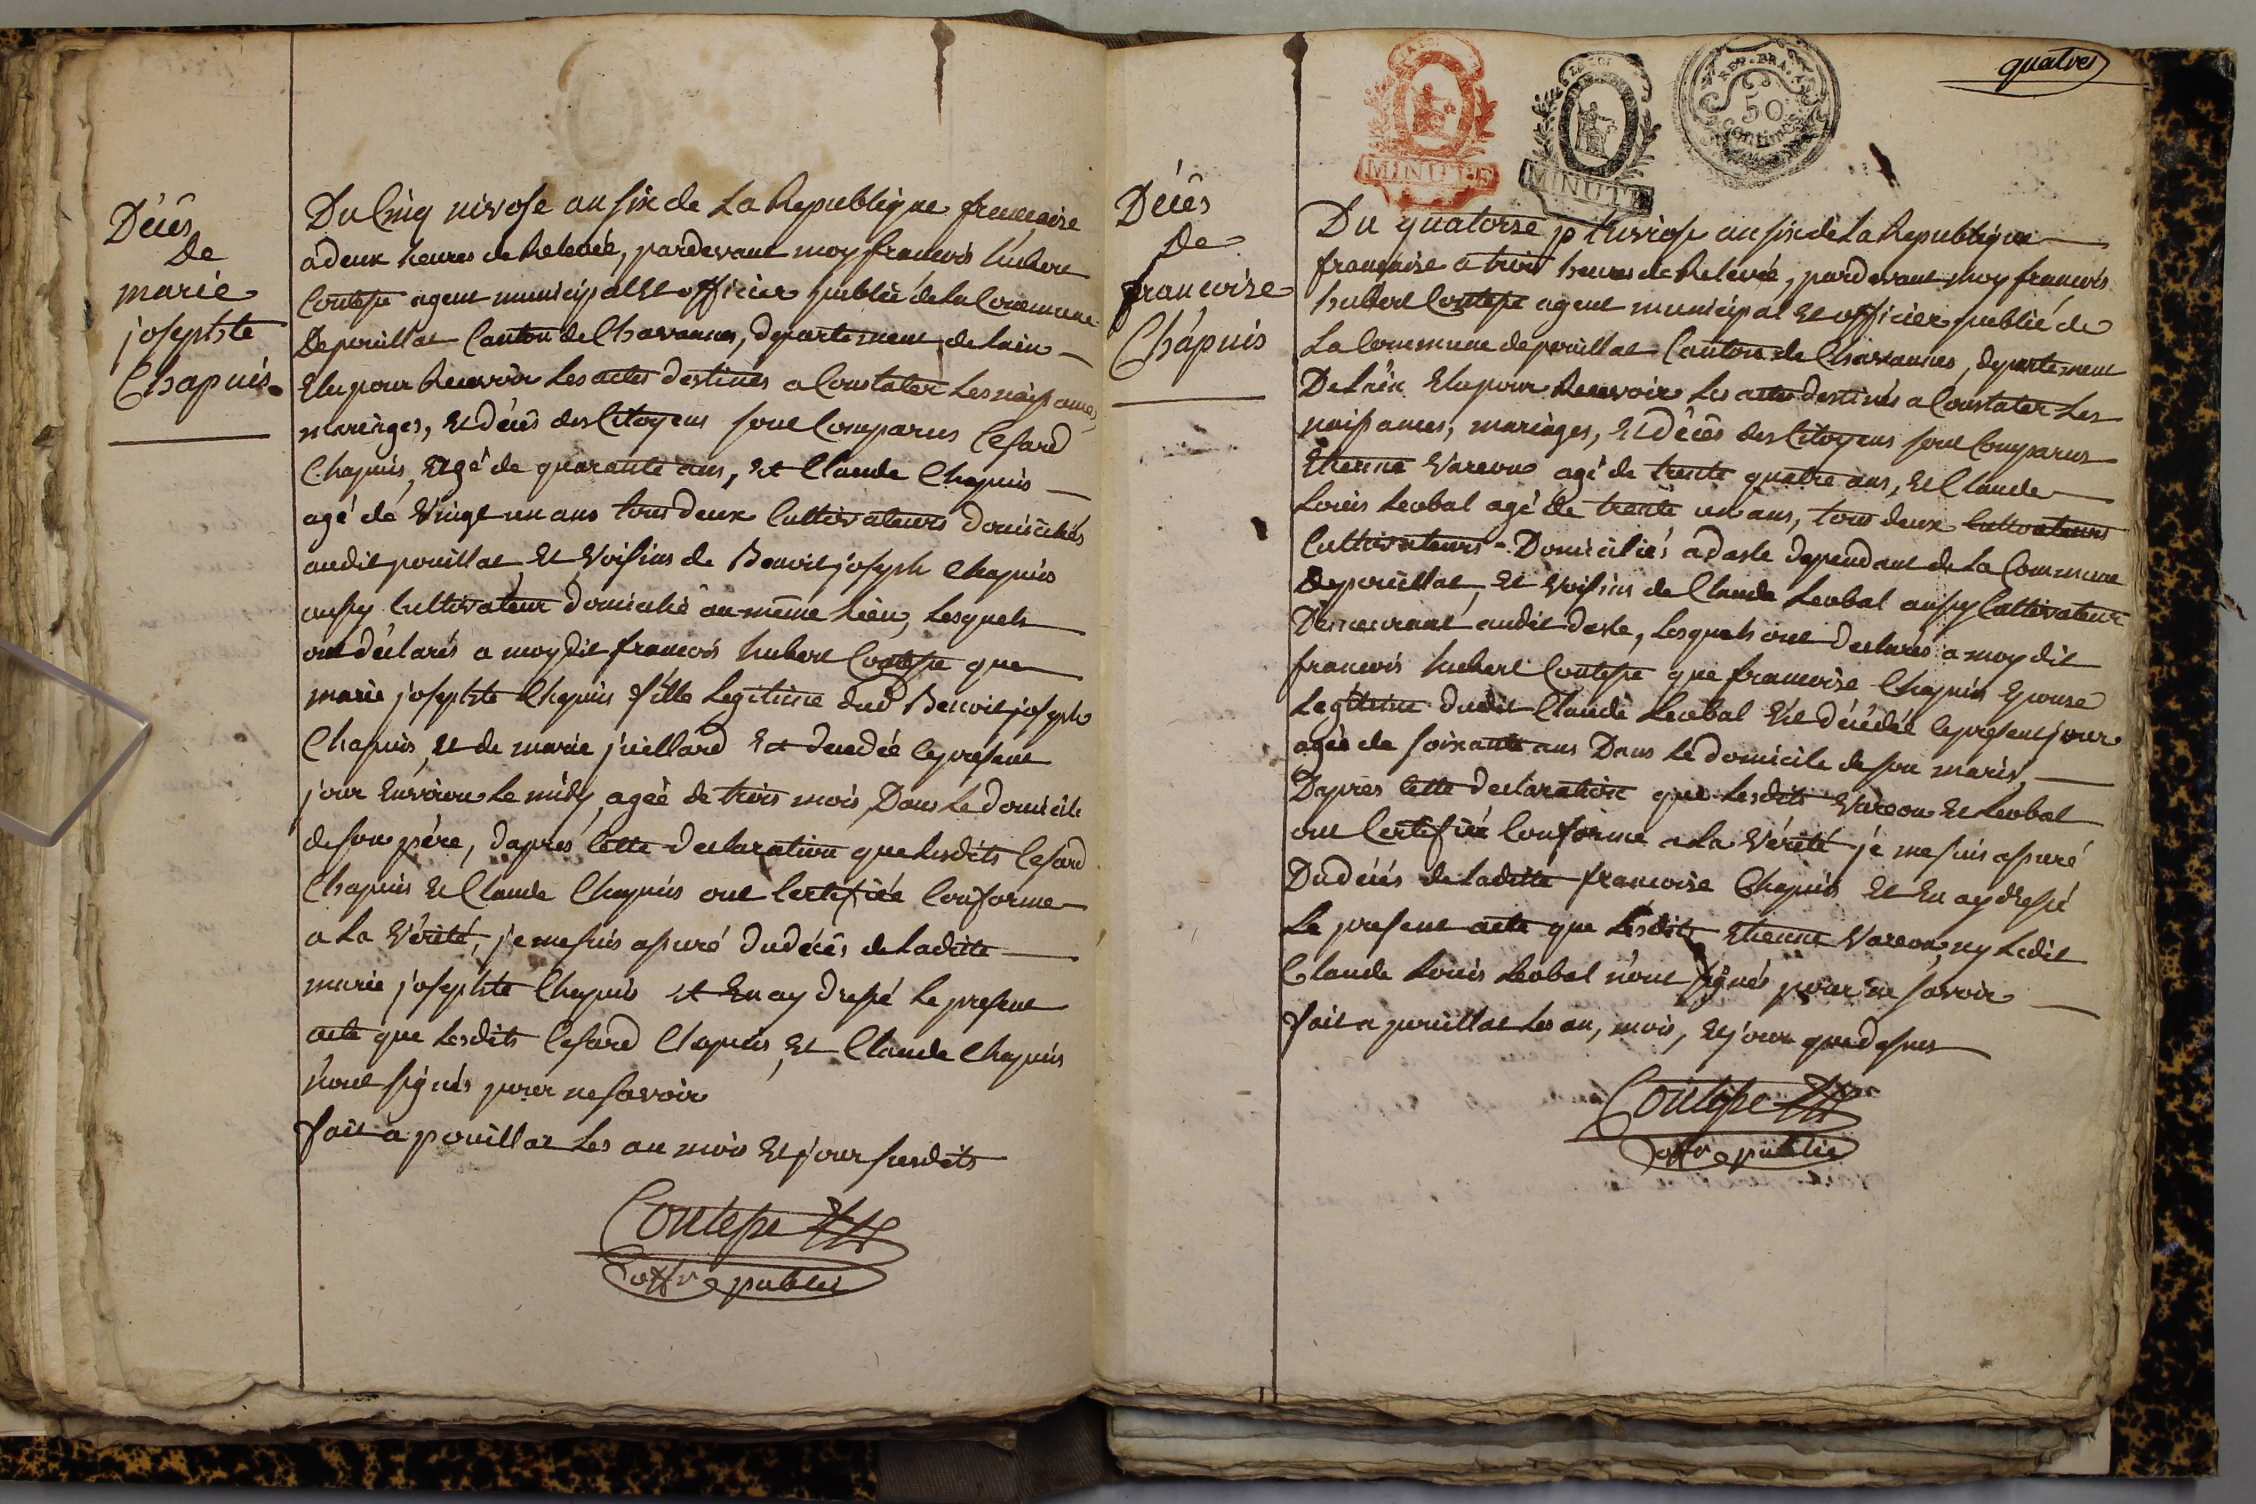 Décês
De
marie
josephte
Chapuis.
Du Cinq nivose an six de La Republique française
a deux heures de Relevée, pardevant moy francois hubert
Coutepe agent municipal Et officier publié de La Commune
De pouillat Canton de Chavannes, departement de Lain
Elu pour Recevoir Les actes destinés a Constater Les naissances,
mariages, Et décês des Citoyens sont Comparus Cesard
Chapuis, Agé de quarante ans, et Claude Chapuis
agé de Vingt un ans tous deux Cultivateurs domiciliés
audit pouillat, Et Voisins de Benoit joseph Chapuis
aussy Cultivateur domicilié au même Lieu, Lesquels
ont déclarés a moy dit francois hubert Coutepe que
marie josephte Chapuis fille Legitime dud Benoit joseph
Chapuis, et de marie juillard Est decedée le present
jour Environ Le midy, agée de trois mois, Dans Le domicile
de son père, dapres Cette declaration que Lesdits Cesard
Chapuis Et Claude Chapuis ont Certifiée Conforme
a La Vérité, je me suis assuré du décês de Laditte
marie josephte Chapuis et En ay dressé Le present
acte que Lesdits Cesard Chapuis, Et Claude Chapuis
n'ont signés pour ne savoir
fait a pouillat Les an mois Et jour susdits
Coutepe
offr public
quatre
MINUTE
LA LOI
MINUTE
REP. FRA.
50
centimes
Décês
De
francoise
Chapuis
Du quatorse pluviose an six de La Republique
française a trois heures de Relevée, pardevant moy francois
hubert Coutepe agent municipal Et officier publié de
La Commune de pouillat Canton de Chavannes, departement
De Lain Elu pour Recevoir Les actes destinés a Constater Les
naissances, mariages, Et décês des Citoyens sont Comparus
Etienne Vareon agé de trente quatre ans, Et Claude
Louis Leobal agé de trente un ans, tous deux Cultivateurs
Cultivateurs - Domiciliés a daste dependant de La Commune
De pouillat, Et Voisins de Claude Leobal aussy Cultivateur
Demeurant audit daste, Lesquels ont declarés a moy dit
francois hubert Coutepe que francoise Chapuis Epouse
Legitime dudit Claude Leobal Est décédée le present jour
agée de soixante ans Dans Le domicile de son maris,
Dapres Cette declaration que Lesdits Vareon Et Leobal
ont Certifiée Conforme a La Vérité je me suis assuré
Du décés de Laditte francoise Chapuis Et En ay dressé
Le present acte que Lesdits Etienne Vareon, ny Ledit
Claude Louis Leobal n'ont signés pour ne savoir
fait a pouillat Les an, mois, Et jour que dessus
Coutepe
offr public